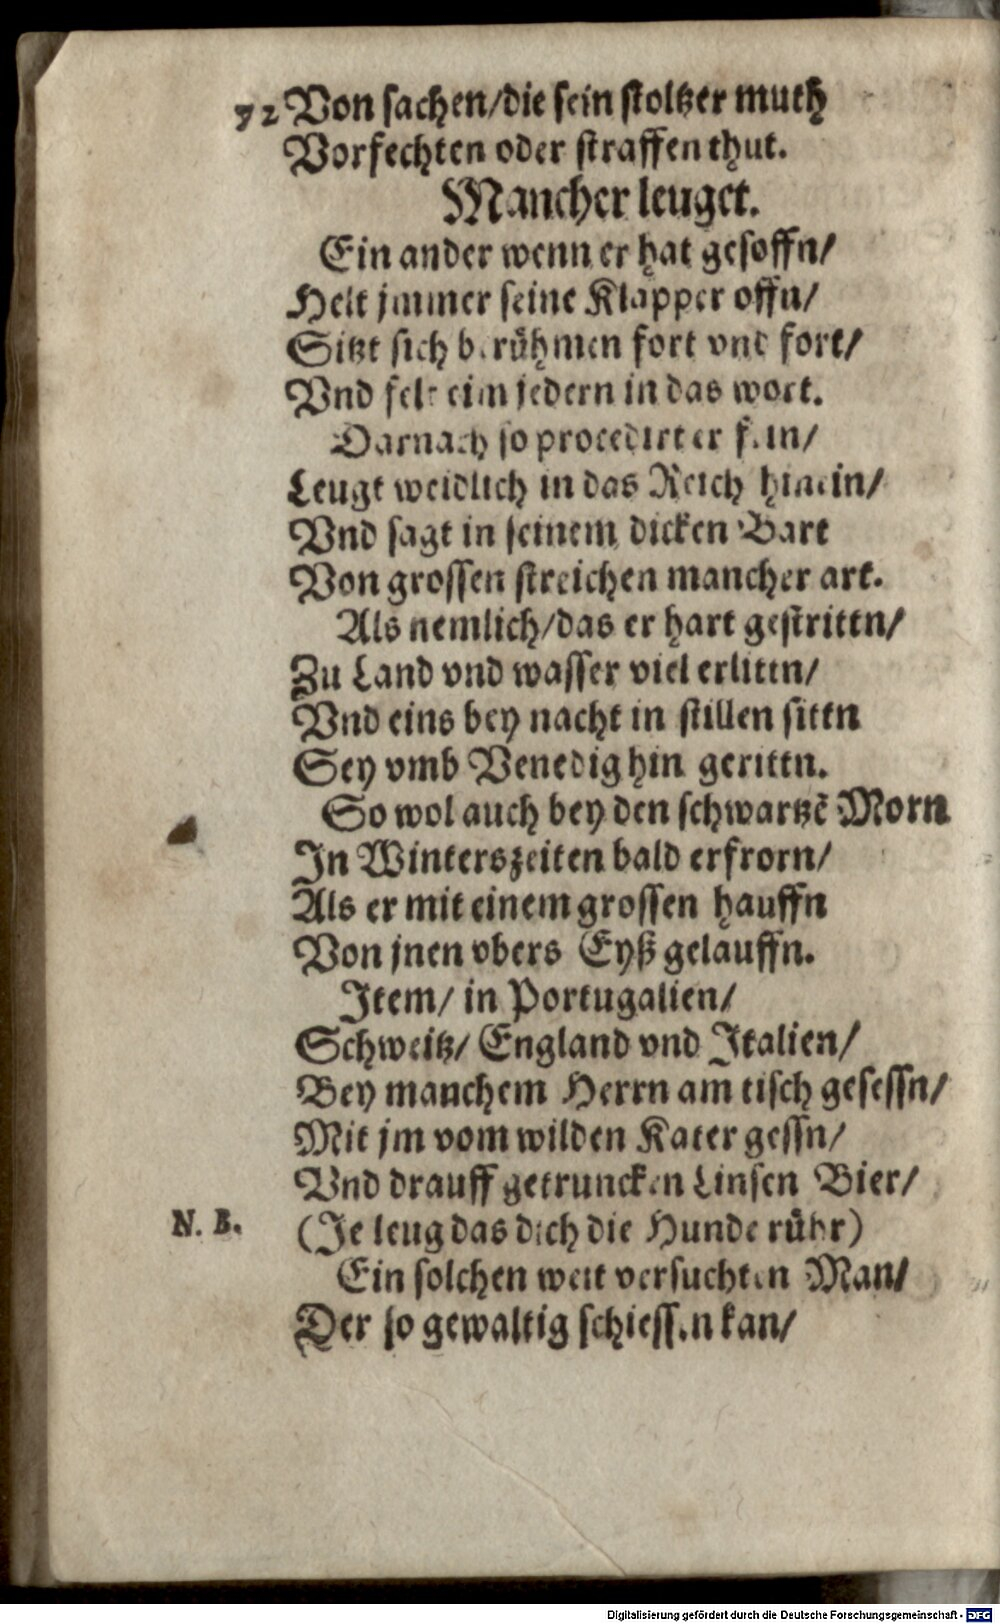 72 Von sachen/die sein stoltzer muth
Vorfechten oder straffen thut.
Mancher leuget.
Ein ander wenn er hat gesoffn/
Helt jmmer seine Klapper offn/
Sitzt sich berühmen fort vnd fort/
Vnd felt eim jedern in das wort.
Darnach so procedirt er fein/
Leugt weidlich in das Reich hinein/
Vnd sagt in seinem dicken Bart
Von grossen streichen mancher art.
Als nemlich/das er hart gestrittn/
Zu Land vnd wasser viel erlittn/
Vnd eins bey nacht in stillen sittn
Sey vmb Venedig hin gerittn.
So wol auch bey den schwartzē Morn
In Winterszeiten bald erfrorn/
Als er mit einem grossen hauffn
Von jnen vbers Eyß gelauffn.
Item/ in Portugalien/
Schweitz/ England vnd Italien/
Bey manchem Herrn am tisch gesessn/
Mit jm vom wilden Kater gessn/
Vnd drauff getruncken Linsen Bier/
N. B. (Je leug das dich die Hunde rühr)
Ein solchen weit versuchten Man/
Der so gewaltig schiessen kan/
Digitalisierung gefördert durch die Deutsche Forschungsgemeinschaft - DFG